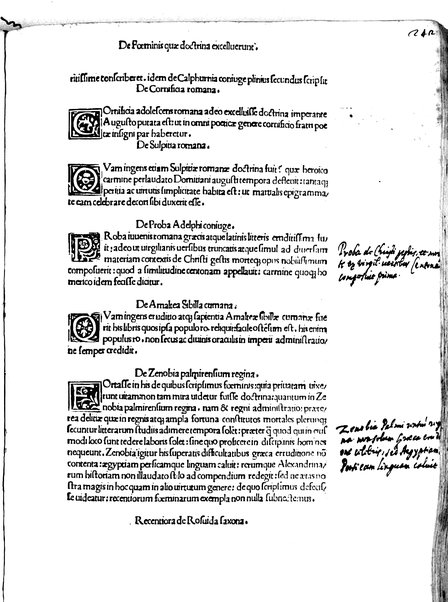 242
De Fœminis quæ doctrina excelluerunt.
ritissime conscriberet. idem de Calphurnia coniuge plinius secundus scripsit
De Cornificia romana.
COrnificia adolescens romana adeo excelluisse doctrina imperante
Augusto putata est: ut in omni poeticæ genere cornificio fratri poe
tæ insigni par haberetur.
De Sulpitia romana.
QVam ingens etiam Sulpitiæ romanæ doctrina fuit? quæ heroico
carmine perlaudato Domitiani augusti tempora deflevit: tantaq;
peritia ac virtutis simplicitate habita est: ut martialis epigramma,
te eam celebrare decori sibi duxerit esse.
De Proba Adelphi coniuge.
PRoba iuuenis romana græcis atque latinis litteris eruditissima fu,
it: adeo ut uirgilianis uersibus truncatis atque simul ad diuersam
materiam contextis de Christi gestis morteq; opus nobilissimum
composuerit: quod a similitudine centonam appellauit: carmine quoq; ho
merico idem fecisse dicitur.
Proba de Christi gestis, et mor
te ex virgil. uersibus Centonas
congessit prima.
De Amalthea Sibilla cumana.
QVam ingens eruditio atq; sapientia Amaltheæ sibillæ cumanæ fue
rit his libris quos ipsa populo ro. reliquit facile ostensum est. his enim
populus ro. non secus ac diuinis oraculis in imperii administratio,
ne semper credidit.
De Zenobia palmirensium regina.
FOrtasse in his de quibus scripsimus fœminis: quia priuatam uixe,
runt uitam non tam mira uidetur fuisse doctrina: quantum in Ze
nobia palmirensium regina. nam & regni administratio: præte,
rea delitiæ quæ in regnis atq; ampla fortuna constitutos mortales plerunq;
sequuntur litterarum studiis adimere tempora solet: præter q̃ quod quin eius
modi loco sunt tedere laboris solet: sine quo proficere in disciplinis homines
nequeunt. Zenobia igitur his superatis difficultatibus græca eruditione nõ
contenta: ægyptiam persicamque linguam caluit: rerumque Alexandrina,
rum historiam non illaudato stilo ad compendium redegit: sed ne ætas no
stra magis in hoc quam in alio uirtutum genere: de quo scripsimus defecis,
se uideatur: recentiorum fœminarum exempla non nulla subnectemus.
Zenobia Palmi renorũ regi
na non solum Græca erudi
one
Persicam linguam caluit
Recentiora de Rosuida saxona.